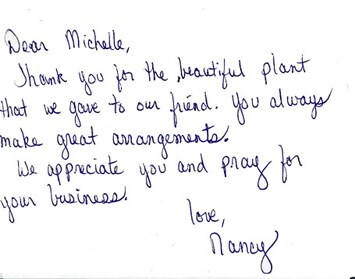 Dear Michelle,
Thank you for the beautiful plant
that we gave to our friend. You always
make great arrangements.
We appreciate you and pray for
your business.
love,
Nancy